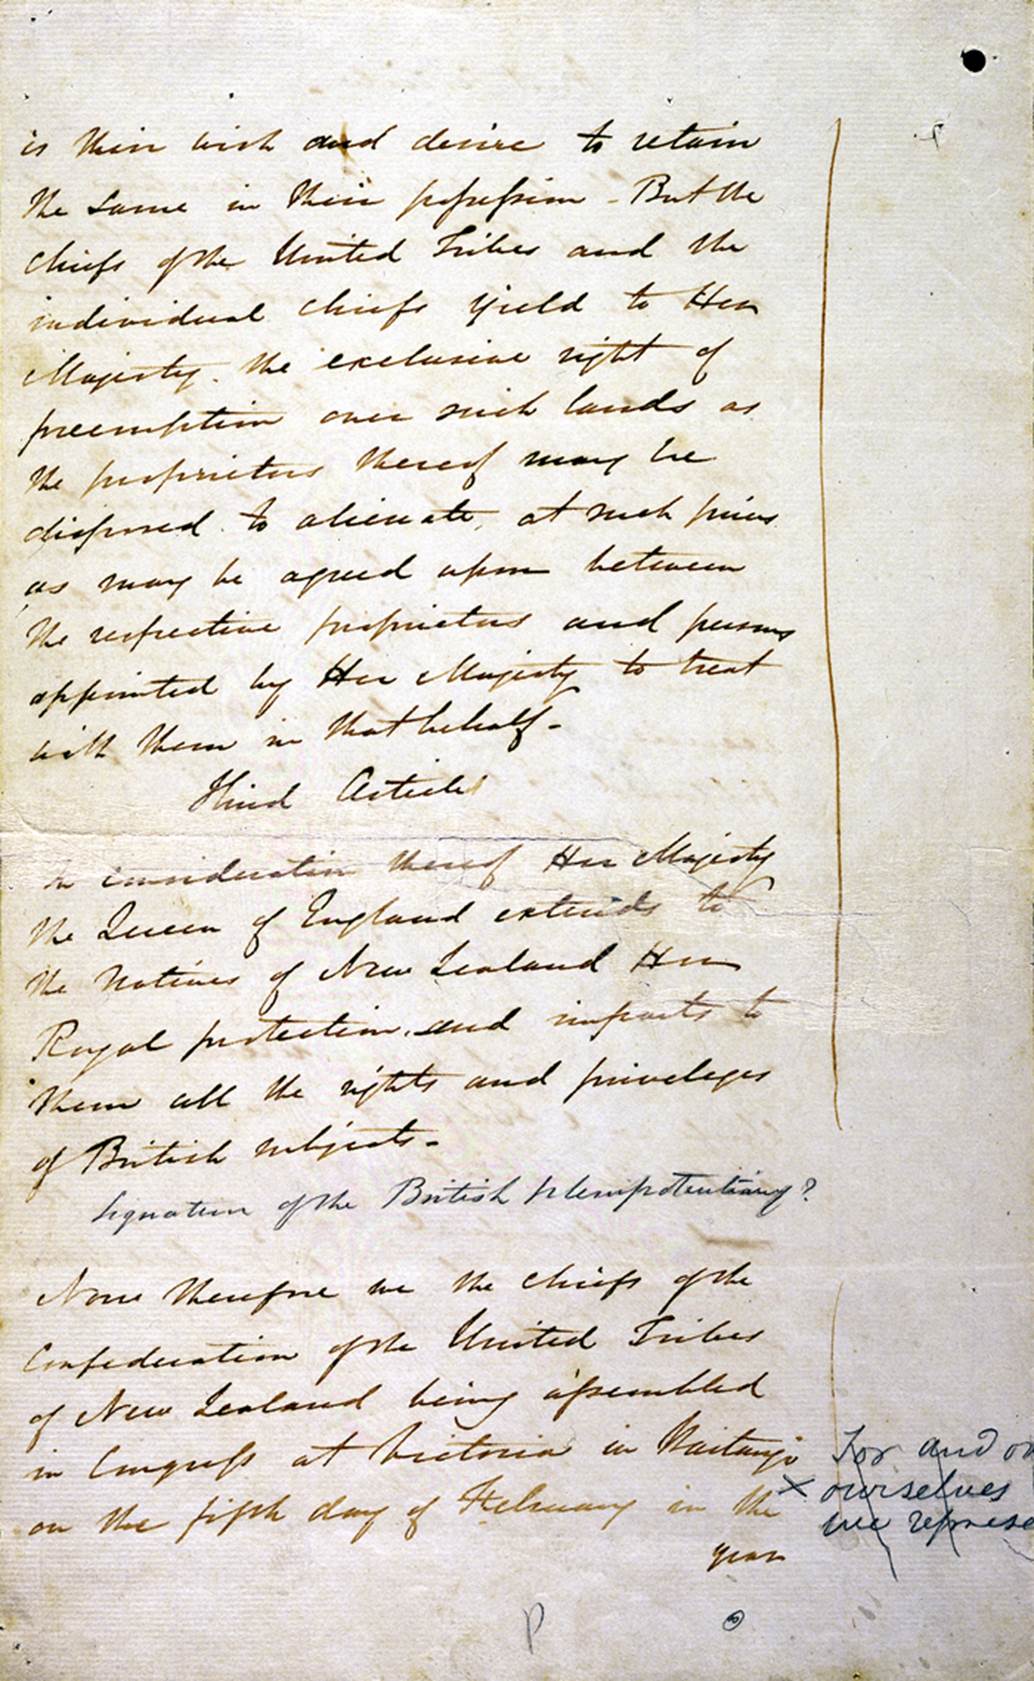 is their wish and desire to retain
the same in their possession - But the
chiefs of the United Tribes and the
individual chiefs yield to Her
Majesty. the exclusive right of
preemption over such lands as
the proprietors thereof may be
disposed to alienate, at such prices
as may be agreed upon between
the respective proprietors and persons
appointed by Her Majesty to treat
with them in that behalf -
Third Article
In consideration thereof Her Majesty
the Queen of England extends to
the Natives of New Zealand Her
Royal protection. and imparts to
them all the rights and priveleges
of British subjects -
Signature of the British Plenipotentiary?
Now therefore we the chiefs of the
Confederation of the United Tribes
of New Zealand being assembled
in Congress at Victoria in Waitangi
on the fifth day of February in the
year
For and on
x ourselves
we represe
P